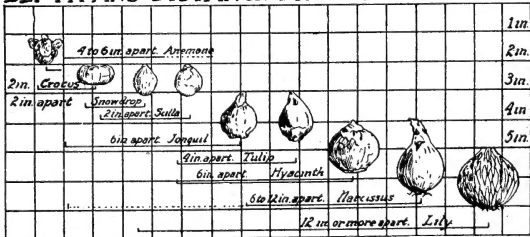 1in.
4 to 6 in. apart. Anemone
2in.
2in. Crocus
3in.
2in apart
Snowdrop
2in.apart. Scilla
4in
6in apart. Jonquil
5in.
4in.apart. Tulip
6in. apart. Hyacinth
6 to 12 in. apart. Narcissus
12 in or more apart. Lily